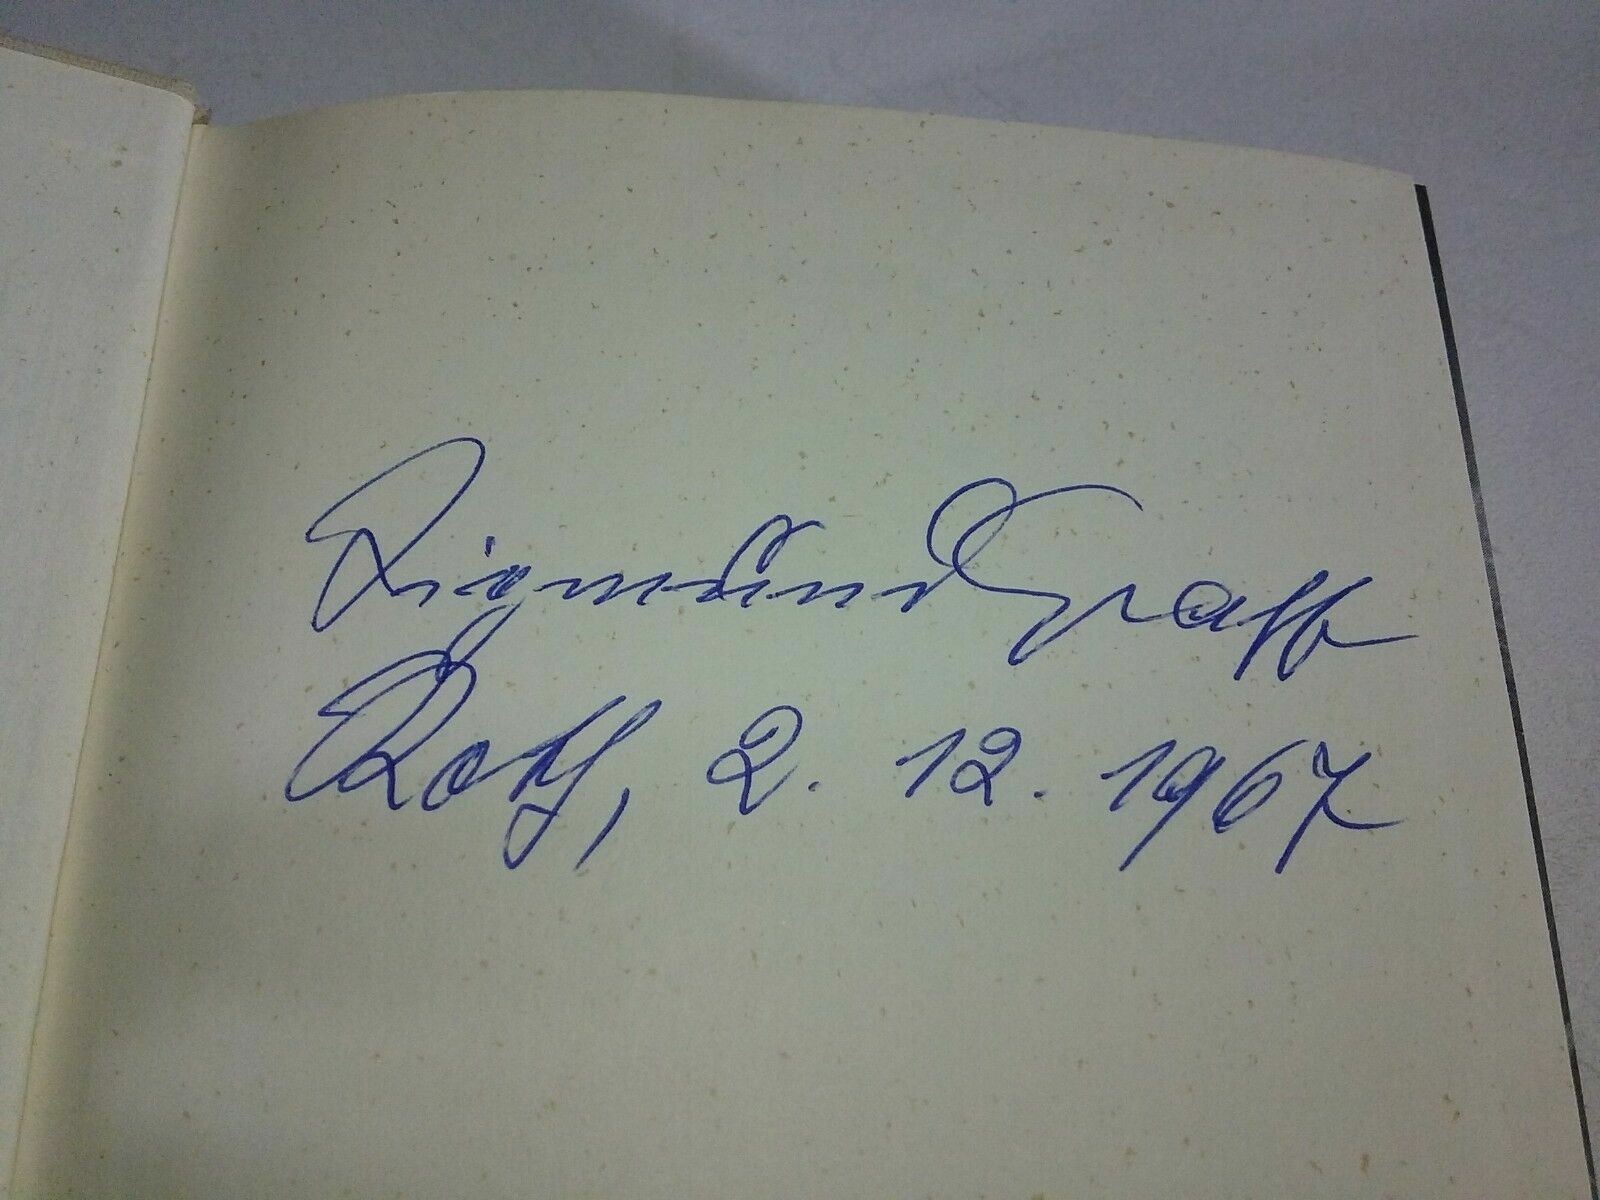 Sigmund Graff
Roth, 2. 12. 1967